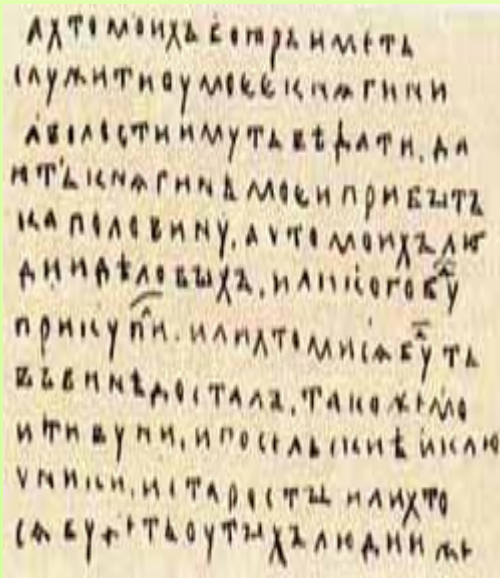 А ХТО МОИХЪ БОꙖРЪ ИМЕТЬ
СЛУЖИТИ ОУ МОЕЕ КНѦГИНИ
А ВОЛОСТИ ИМУТЬ ВѢДАТИ. ДАЮ
ТЬ КНѦГИНѢ МОЕИ ПРИБЫТЪ
КА ПОЛОВИНУ. А ЧТО МОИХЪ ЛЮ
ДИИ ДѢЛОВЫХЪ. ИЛИ КОГО БУⷣ
ПРИКУПИⷧ. ИЛИ ХТО МИ СѦ БУⷣТЬ
ВЪ ВИНѢ ДОСТАЛЪ. ТАКОЖЕ МО
И ТИВУНИ. И ПОСЕЛЬСКИѢ И КЛЮ
ЧНИКИ. И СТАРОСТЫ ИЛИ ХТО
СѦ БУДЕТЬ ОУ ТЫХЪ ЛЮДИИ ЖЕ